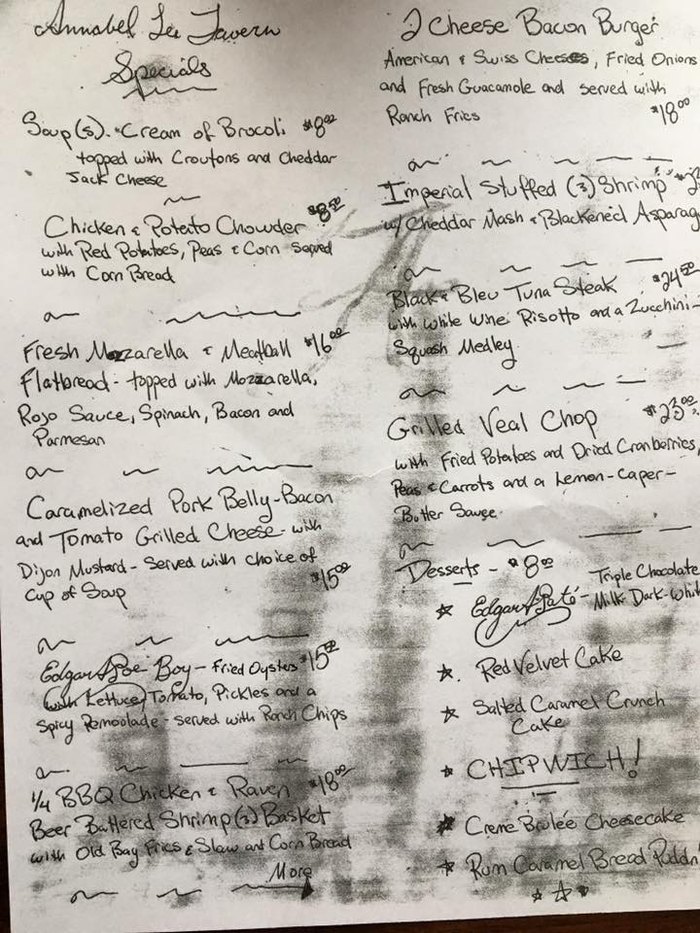 Annabel Lee Tavern
Specials
Soup(s). Cream of Brocoli $8.00
topped with Croutons and Cheddar
Jack Cheese
Chicken & Potato Chowder $8.50
with Red Potatoes, Peas & Corn served
with Corn Bread
Fresh Mozzarella & Meatball $16.00
Flatbread - topped with Mozzarella,
Rojo Sauce, Spinach, Bacon and
Parmesan
Caramelized Pork Belly-Bacon
and Tomato Grilled Cheese - with
Dijon Mustard - Served with choice of
Cup of Soup $15.00
Edgar A Poe Boy - Fried Oysters $15.00
with Lettuce, Tomato, Pickles and a
Spicy Remoolade - served with Ranch Chips
1/4 BBQ Chicken & Raven $18.00
Beer Battered Shrimp (3) Basket
with Old Bay Fries & Slaw and Corn Bread
More
2 Cheese Bacon Burger
American & Swiss Cheeses, Fried Onions
and Fresh Guacamole and served with
Ranch Fries $18.00
Imperial Stuffed (3) Shrimp
w/ Cheddar Mash & Blackened Asparag
Black & Bleu Tuna Steak $24.50
with White Wine Risotto and a Zucchini -
Squash Medley
Grilled Veal Chop $23.00
with Fried Potatoes and Dried Cranberries,
Peas & Carrots and a Lemon-Caper-
Butter Sauce.
Desserts - $8.00
☆ Edgar A Paté - Triple Chocolate
Milk-Dark-Whit
☆. Red Velvet Cake
☆ Salted Caramel Crunch
Cake
☆ CHIPWICH!
☆ Creme Brulée Cheesecake
☆ Rum Caramel Bread Puddn